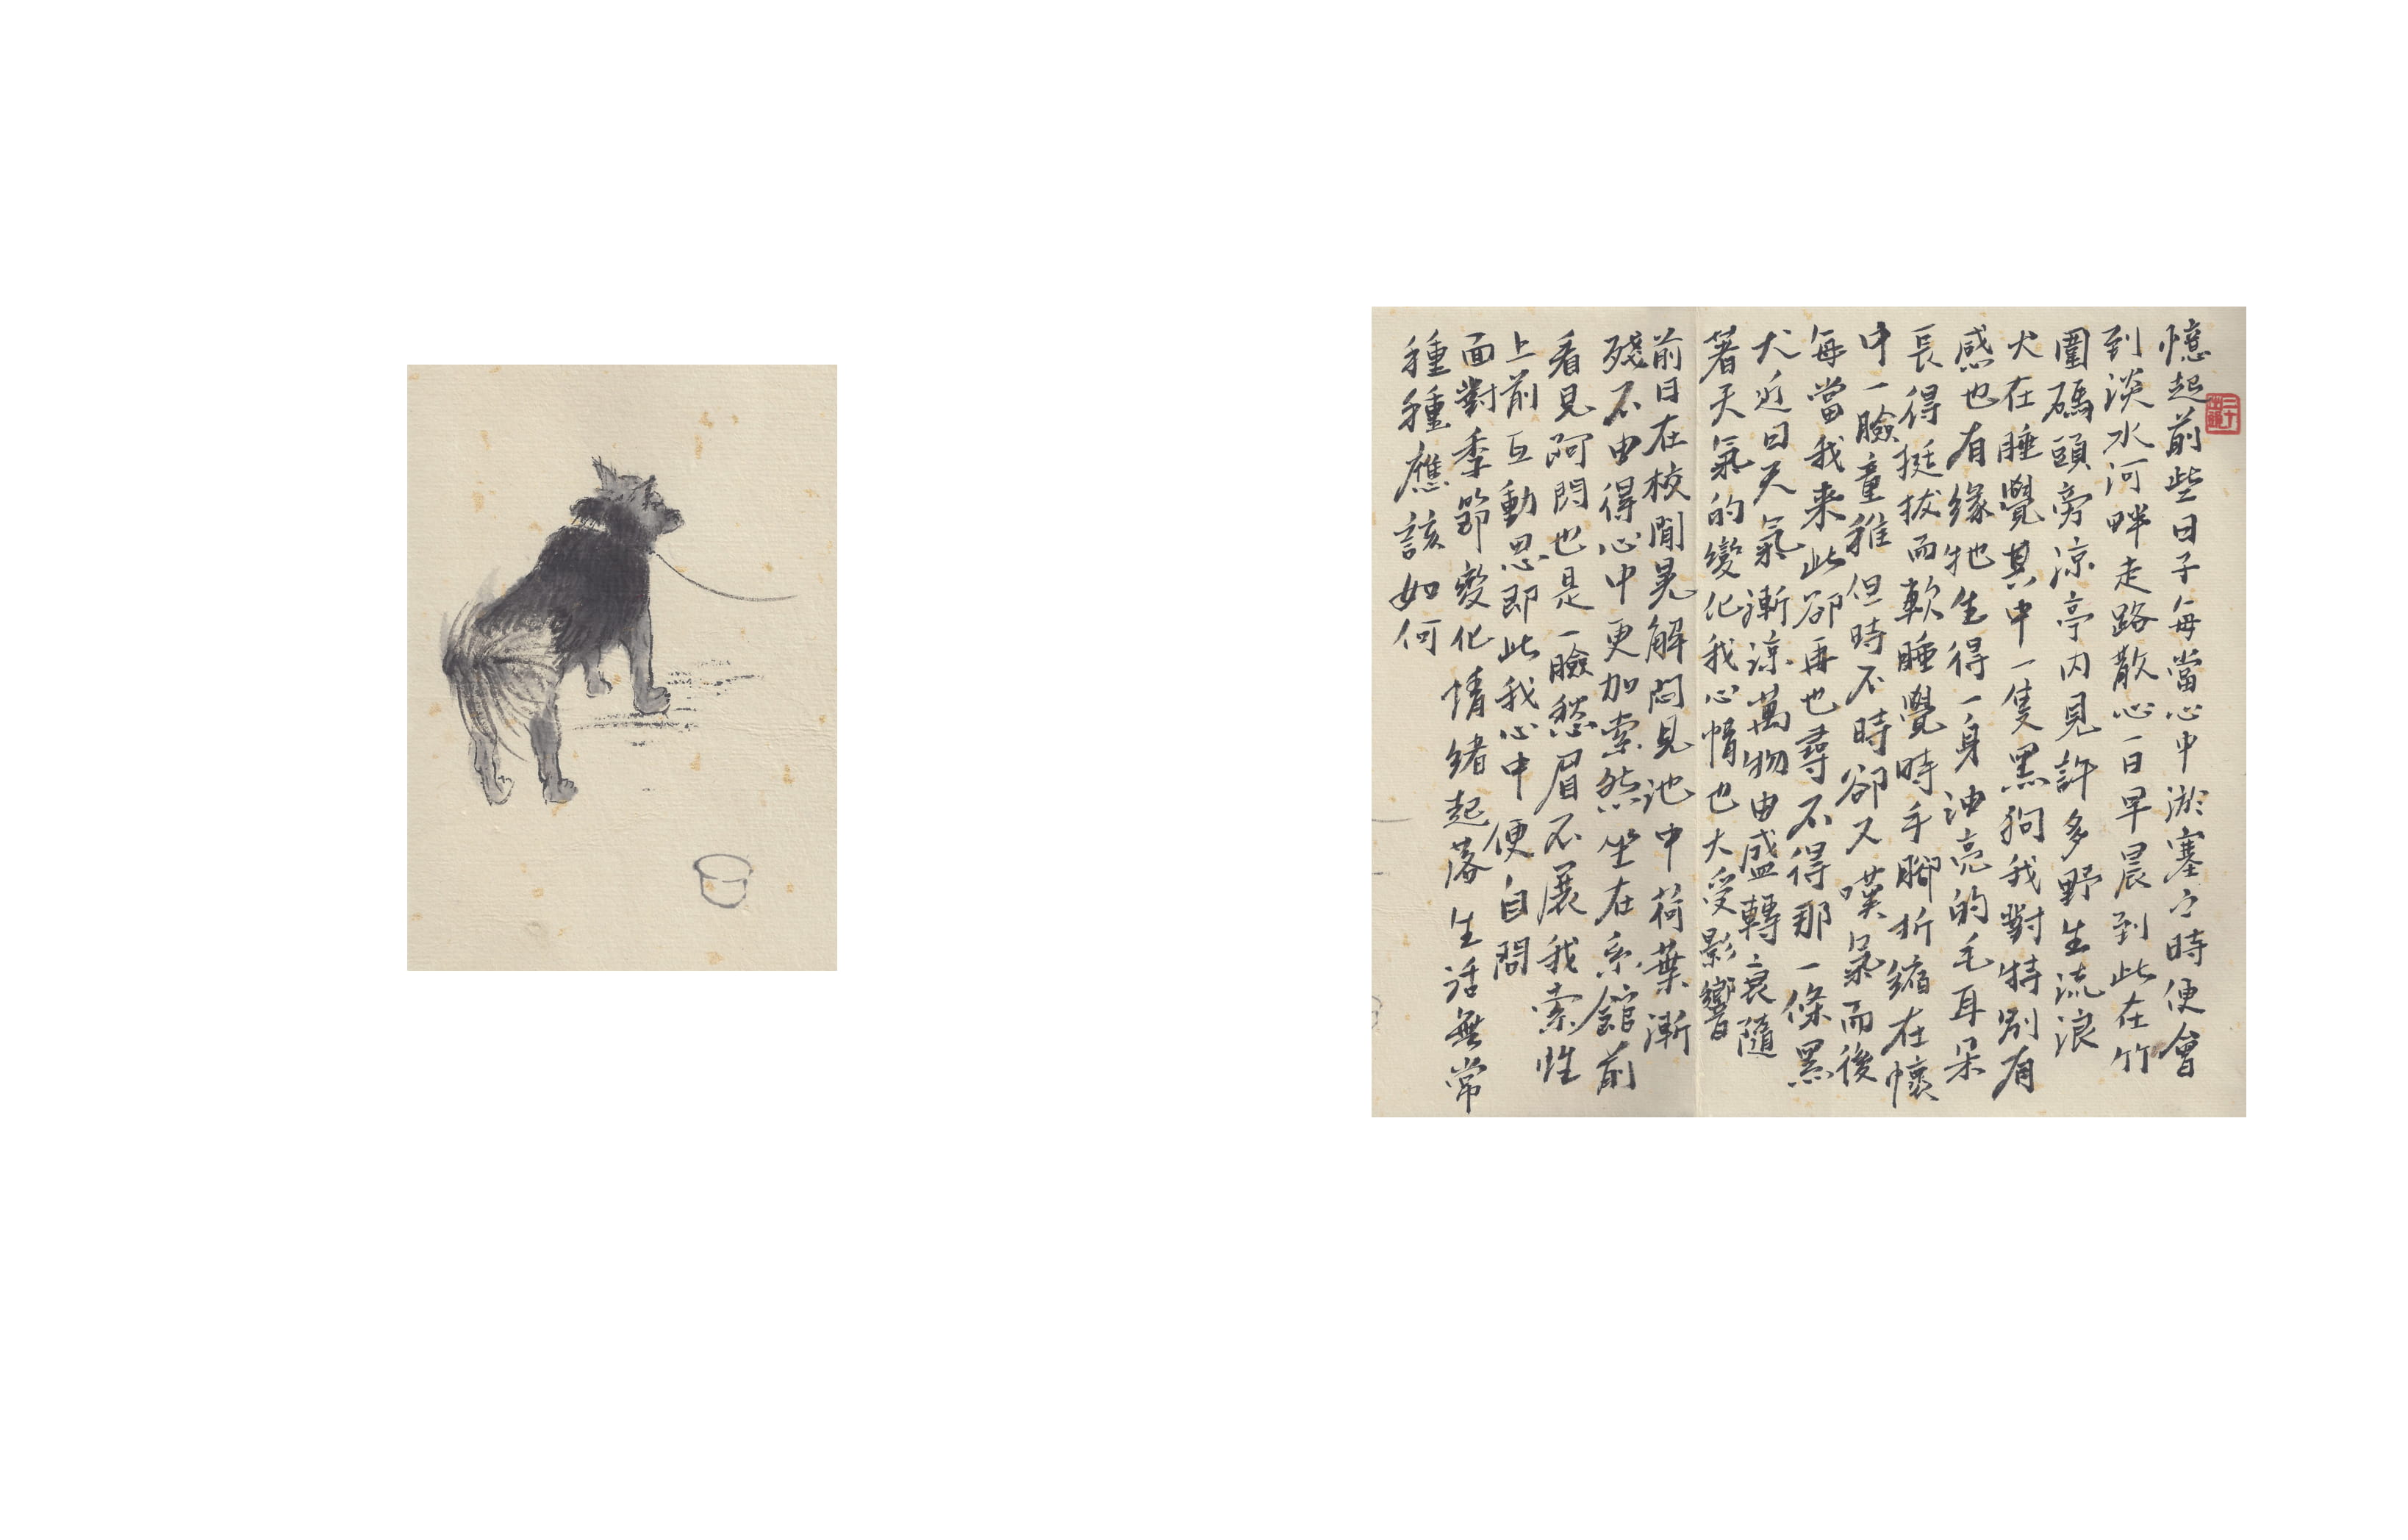 憶起前些日子每當心中淤塞之時便會
到淡水河畔走路散心一日早晨到此在竹
圍碼頭旁涼亭內見許多野生流浪
犬在睡覺其中一隻黑狗我對特別有
感也有緣牠生得一身油亮的毛耳朵
長得挺拔而軟睡覺時手腳折縮在懷
中一臉童稚但時不時卻又嘆氣而後
每當我来此卻再也尋不得那一條黑
犬近日天氣漸涼萬物由盛轉衰隨
著天氣的變化我心情也大受影響
前日在校閒晃解悶見池中荷葉漸
殘不由得心中更加索然坐在系館前
看見阿悶也是一臉愁眉不展我索性
上前互動思即此我心中便自問
面對季節變化情緒起落生活無常
種種應該如何